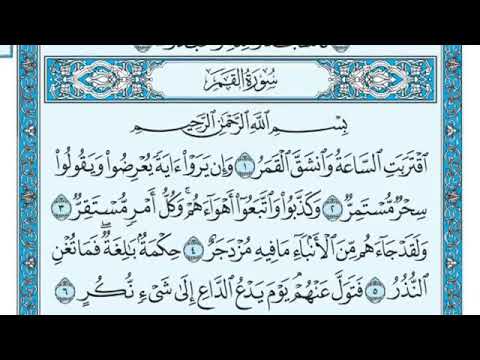 سُورَةُ القَمَرِ
بِسْمِ اللَّهِ الرَّحْمَٰنِ الرَّحِيمِ
اقْتَرَبَتِ السَّاعَةُ وَانشَقَّ الْقَمَرُ ١ وَإِن يَرَوْا۟ ءَايَةً يُعْرِضُوا۟ وَيَقُولُوا۟
سِحْرٌ مُّسْتَمِرٌّ ٢ وَكَذَّبُوا۟ وَاتَّبَعُوٓا۟ أَهْوَآءَهُمْ ۚ وَكُلُّ أَمْرٍ مُّسْتَقِرٌّ ٣
وَلَقَدْ جَآءَهُم مِّنَ الْأَنۢبَآءِ مَا فِيهِ مُزْدَجَرٌ ٤ حِكْمَةٌۢ بَٰلِغَةٌ ۖ فَمَا تُغْنِ
النُّذُرُ ٥ فَتَوَلَّ عَنْهُمْ ۘ يَوْمَ يَدْعُ الدَّاعِ إِلَىٰ شَىْءٍ نُّكُرٍ ٦